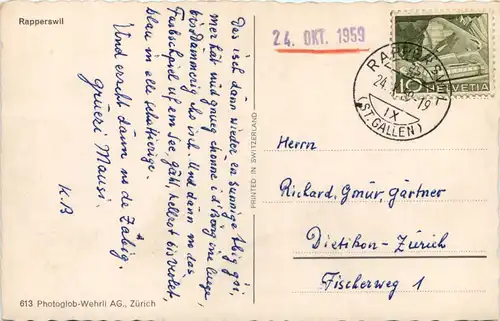 Rapperswil
Das isch dann wieder en sunnige Tag gsi,
mer hät nüd gnueg chönne i d'Berg ine luege,
bis dämmerig cho isch. Und dänn no das
Farbschpiel uf em See, gälb, hellrot bis violet,
blau in alle Schattierige.
Und erscht dänn no de Zabig.
grüezi Mausi.
K.B
613 Photoglob-Wehrli AG., Zürich
PRINTED IN SWITZERLAND
24. OKT. 1959
RAPPERSWIL
24.X.59-19
IX
(ST. GALLEN)
10 HELVETIA
Herrn
Richard, Gmür, gärtner
Dietikon-Zürich
Fischerweg 1